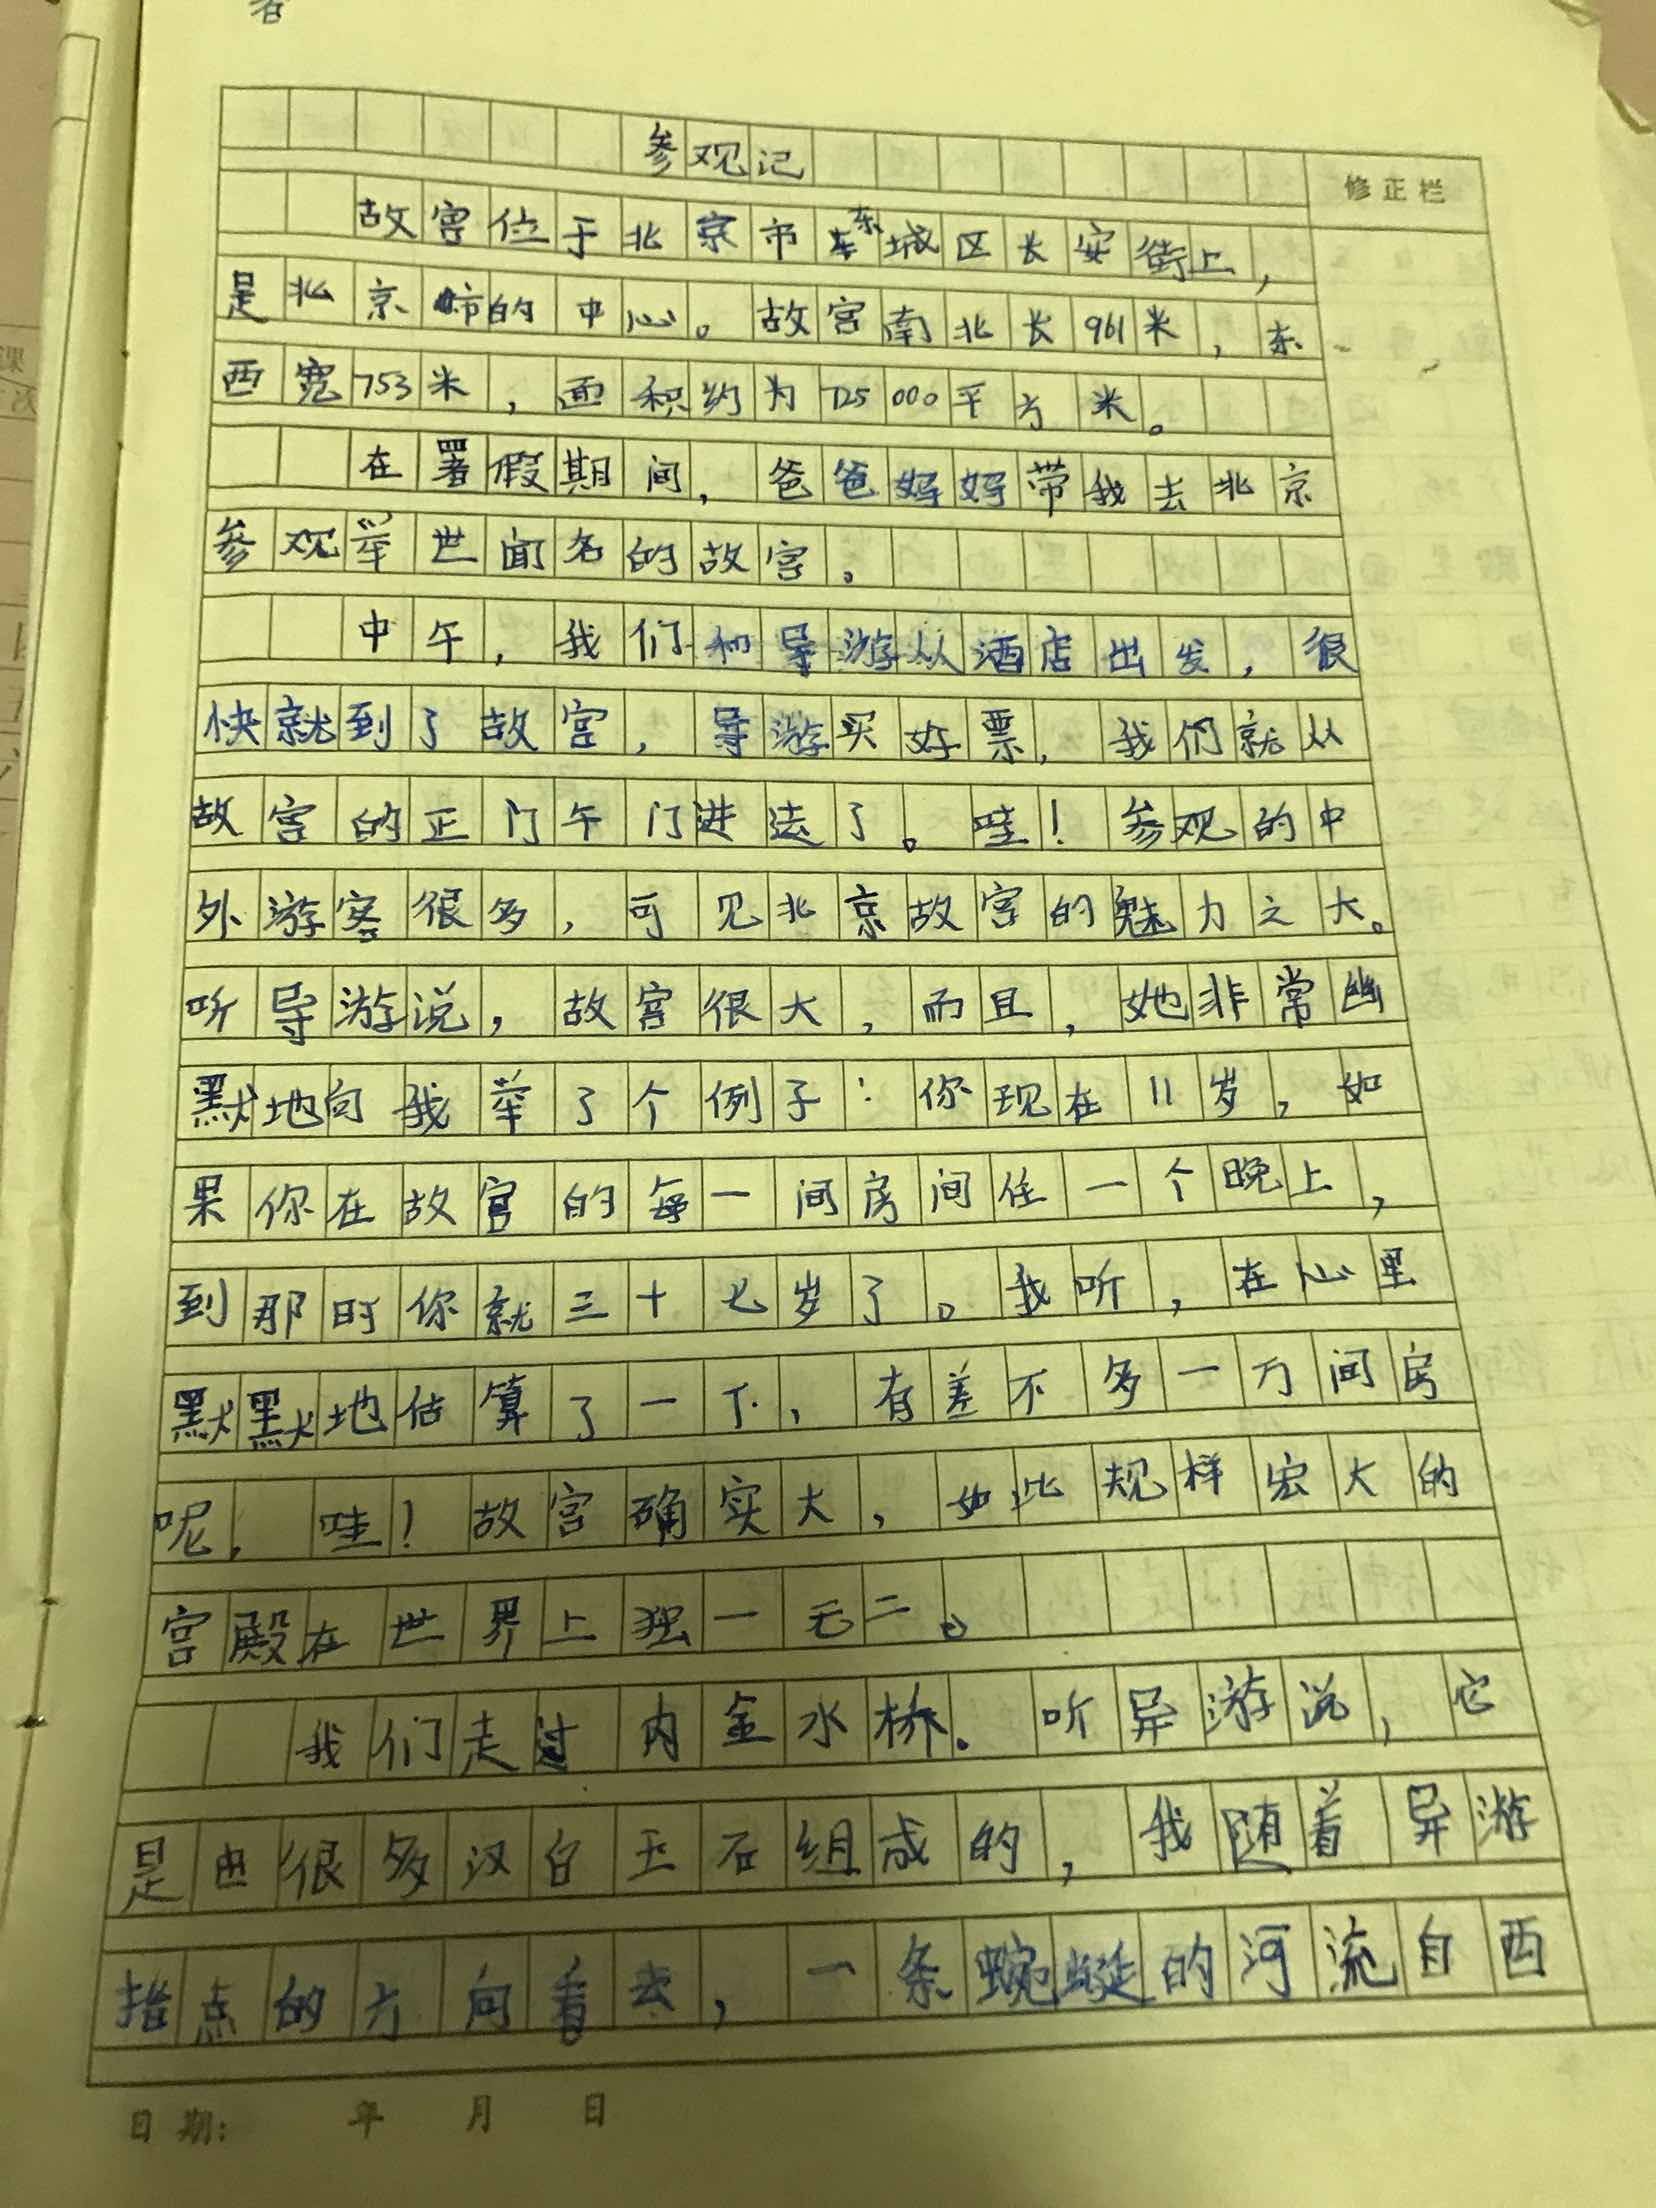 参观记
修正栏
故宫位于北京市东城区长安街上，
是北京市的中心。故宫南北长961米，东
西宽753米，面积约为725000平方米。
在署假期间，爸爸妈妈带我去北京
参观举世闻名的故宫。
中午，我们和导游从酒店出发，很
快就到了故宫，导游买好票，我们就从
故宫的正门午门进去了。哇！参观的中
外游客很多，可见北京故宫的魅力之大。
听导游说，故宫很大，而且，她非常幽
默地向我举了个例子：你现在11岁，如
果你在故宫的每一间房间住一个晚上，
到那时你就三十七岁了。我听，在心里
默默地估算了一下，有差不多一万间房
呢，哇！故宫确实大，如此规样宏大的
宫殿在世界上独一无二。
我们走过内金水桥．听异游说，它
是由很多汉白玉石组成的，我随着异游
指点的方向看去，一条蜿蜒的河流自西
日期：年月日